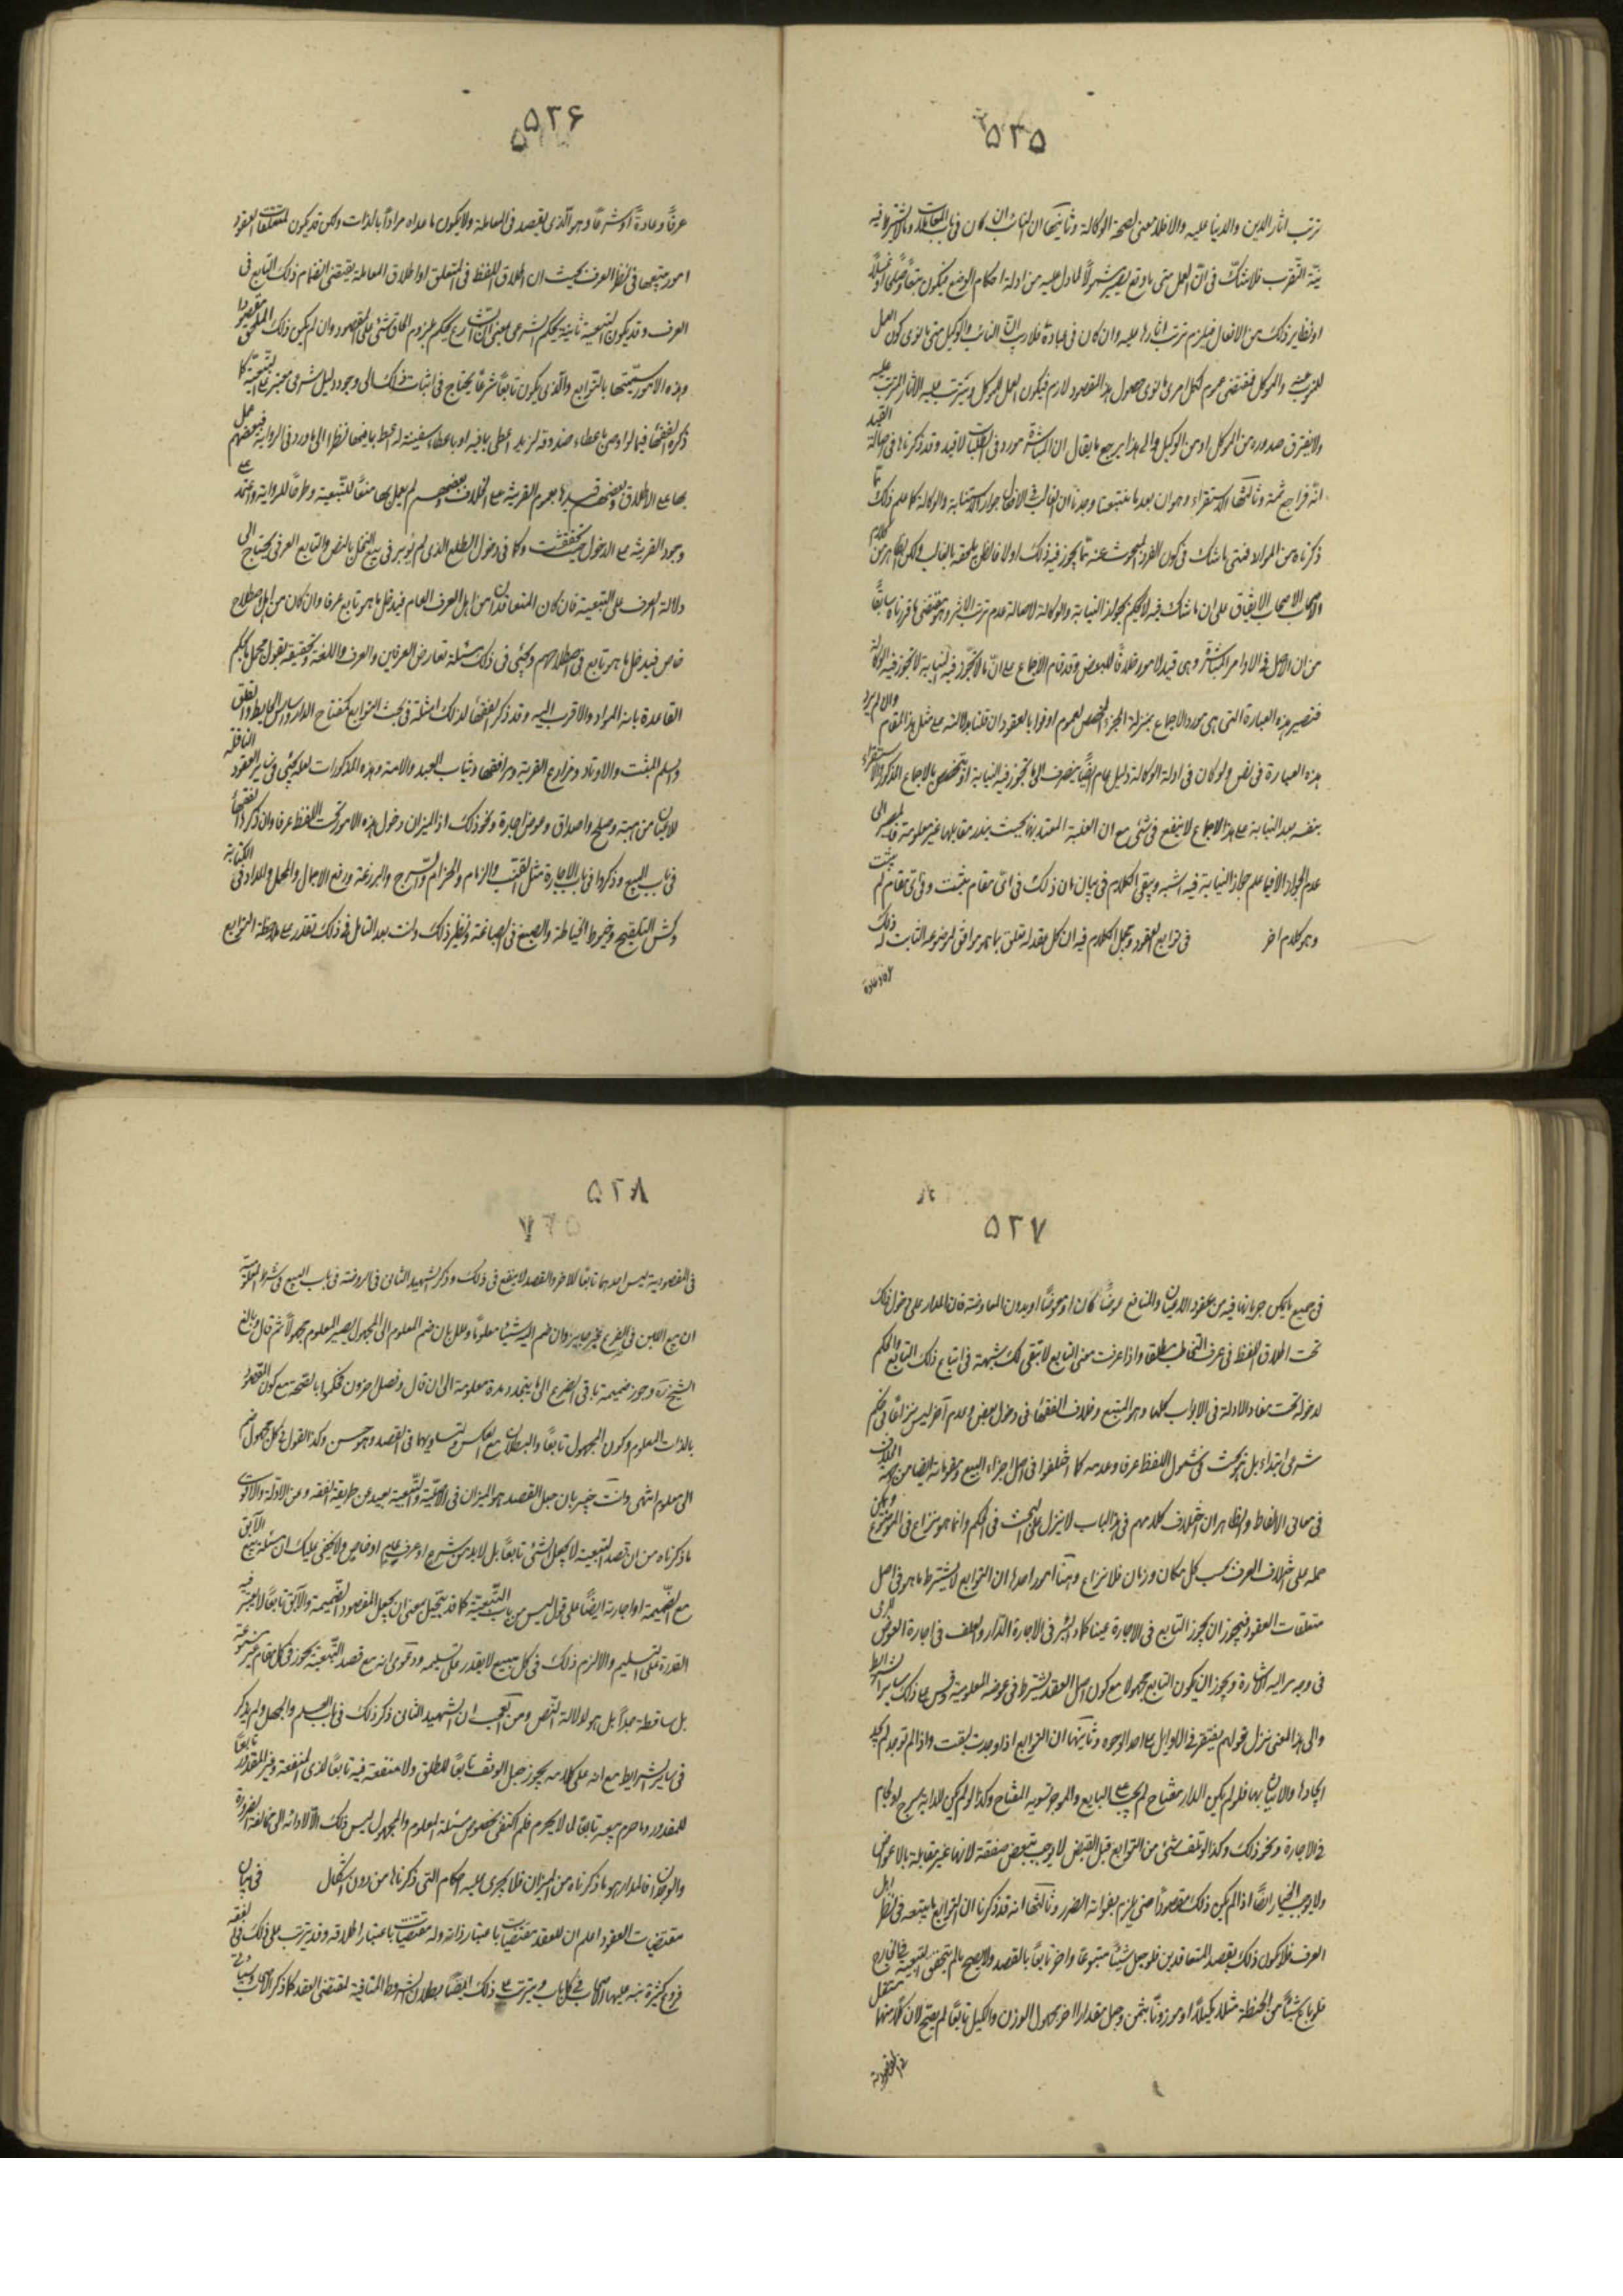 ٥٢٥
ترتب اثار الدين والدنيا عليه والا فلا معنى لصحة الوكالة وثانيتها ان النائب ان كان في باب المعاملات وما لا يشترط فيه
نية التقرب فلا شك في ان العمل متى ما وقع يصير مشمولا لما دل عليه من ادلة احكام الوضع فيكون بيعا وصلحا او غسلا
او نظاير ذلك من الافعال فيلزم ترتب اثارها عليه وان كان في عبادة فلا ريب ان النائب والوكيل متى ما نوى كون العمل
للموكل فمقتضى عموم لكل امرئ ما نوى حصول هذا المقصود لازم فيكون العمل للموكل ويترتب عليه الاثار المترتب عليه
ولا يفترق صدوره من الموكل او من الوكيل والى هذا يرجع ما يقال ان المباشرة مورد في الطلبات لا قيد وقد ذكرناها في اصالة القيد
انه فراجع ثمة وثالثتها الاستقراء وهو ان بعد ما تتبعنا وجدنا ان الغالب في الافعال جواز الاستنابة والوكالة كما علم ذلك مما
ذكرناه من الموارد فمتى ما شك في كون الفرد المبحوث عنه مما يجوز فيه ذلك او لا فالظن يلحقه بالغالب ولكن الظاهر من كلام
الاصحاب الاتفاق على ان ما شك فيه لا يحكم بجواز النيابة والوكالة لاصالة عدم ترتب الاثر وهو مقتضى ما قررناه سابقا
من ان الاصل في الاوامر المباشرة وهى قيد لا مورد خلافا للبعض وقد قام الاجماع على ان ما لا تجوز فيه النيابة لا تجوز فيه الوكالة
فتصير هذه العبارة التى هى مورد الاجماع بمنزلة الجزء المخصص لعموم اوفوا بالعقود ان قلنا بدلالته على مثل هذا المقام والا لم يرد
هذه العبارة في نص ولو كان في ادلة الوكالة دليل عام ايضا ينصرف الى ما تجوز فيه النيابة او يتخصص بالاجماع المذكور والاستقراء
بنفسه بعد النيابة على هذا الاجماع لا ينفع في شئ مع ان الغلبة المعتد بها بحيث يندر مقابلها غير معلومة فالمصير الى
عدم الجواز الا فيما علم جواز النيابة فيه اشبه ويبقى الكلام في بيان ان ذلك في اى مقام يثبت وفي اى مقام لم يثبت
وهو كلام اخر في توابع العقود ومجمل الكلام فيه ان كل عقد له متعلق بما هو موافق لموضوعه الثابت له ذلك
٥٢٦
عرفا وعادة او شرعا وهو الذى يقصد في المعاملة ولا يكون ما عداه مرادا بالذات ولكن قد يكون لمتعلقات العقود
امور يتبعها في نظر العرف بحيث ان اطلاق اللفظ في المتعلق او اطلاق المعاملة يقتضى انضمام ذلك التابع في
العرف وقد يكون التبعية ثابتة بحكم الشرعى بمعنى ان الشارع يحكم بلزوم الحاق شئ على المقصود وان لم يكن ذلك الملحق مقصودا
وهذه الامور سميتها بالتوابع والذى يكون تابعا شرعا يحتاج في اثبات ذلك الى وجود دليل شرعى معتبر على التبعية كما
ذكره الفقهاء فيما لو اوصى باعطاء صندوقه لزيد اعطى بما فيه او باعطاء سفينة له اعطى بما فيها نظرا الى ما ورد في الرواية فبعضهم عمل
بها على الاطلاق وبعضهم قيدها بعموم القرينة على الخلاف وبعضهم لم يعمل بها منعا للتبعية وطرحا للرواية واعتمد على
وجود القرينة على الدخول حيث تحققت وكما في دخول الطلع الذى لم يؤبر في بيع النخل بالنص والتابع العرفى يحتاج الى
دلالة العرف على التبعية فان كان المتعاقدان من اهل العرف العام فيدخل ما هو تابع عرفا وان كان من اهل اصطلاح
خاص فيدخل ما هو تابع في اصطلاحهم ويجئ في ذلك مسئلة تعارض العرفين والعرف واللغة وتحقيقه يقول محمل ما يحكم
القاعدة بانه المراد والاقرب اليه وقد ذكر الفقهاء لذلك امثلة في بحث التوابع كمفتاح الدار واساس الحايط والغلق
والسلم المثبت والاوتاد ومزارع القرية ومرافقها وثياب العبد والامة وهذه المذكورات لعله يجئ في ساير العقود الناقلة
للاعيان من هبة وصلح واصداق وعوض اجارة ونحو ذلك اذ الميزان دخول هذه الامور تحت اللفظ عرفا وان ذكرها الفقهاء
في باب البيع وذكروا في باب الاجارة مثل القتب والزمام والحزام والسرج والبرذعة ورفع الاحمال والمحمل والمداد في الكتابة
وكش التلقيح وخيوط الخياطة والصبغ في الصباغة ونظير ذلك وانت بعد التامل في ذلك تقدر على ملاحظة التوابع
٥٢٧
في جميع ما يمكن جريانها فيه من عقود الاعيان والمنافع عوضا كان او معوضا او بدون المعاوضة فان المدار على دخول ذلك
تحت اطلاق اللفظ في عرف التخاطب مطلقا واذا عرفت معنى التابع لا تبقى لك شبهة في اتباع ذلك التابع والحكم
لدخوله تحت مفاد الادلة في الابواب كلها وهو المتبع وخلاف الفقهاء في دخول بعض وعدم آخر ليس نزاعا في حكم
شرعى ابتداء بل هو بحث في شمول اللفظ عرفا وعدمه كما اختلفوا في اصل اجزاء المبيع ومقوماته ايضا من جهة الخلاف
في معانى الالفاظ والظاهر ان اختلاف كلامهم في هذا الباب لا ينزل على البحث في الحكم وانما هو نزاع في الموضوع ويمكن
حمله على اختلاف العرف بحسب كل مكان وزمان فلا نزاع وهنا امور احدها ان التوابع لا يشترط ما هو في اصل
متعلقات العقود فيجوز ان يجوز التابع في الاجارة عينا كماء البئر في الاجارة الدار والعلف في اجارة العرض
في وجه مر اليه الاشارة ويجوز ان يكون التابع مجهولا مع كون اصل العقد يشترط في عوضه المعلومية وقس على ذلك ساير الشرائط
والى هذا المعنى ينزل قولهم يغتفر في الثوانى ما لا يغتفر في الاوايل على احد الوجوه وثانيتها ان التوابع اذا وجدت تبعت واذا لم توجد لم يجب
ايجادها والاتيان بها فلو لم يكن للدار مفتاح لم يجب على البايع والموجر تسوية المفتاح وكذا لو لم يكن للدابة سرج او لجام
في الاجارة ونحو ذلك وكذا لو تلف شئ من التوابع قبل القبض لا يوجب تبعض صفقة لانها غير مقابلة بالاعواض
ولا يوجب الخيار ايضا اذا لم يكن ذلك مقصودا حتى يلزم بفواته الضرر وثالثتها انه قد ذكرنا ان التوابع ما يتبعه في نظر اهل
العرف فلا يكون ذلك بقصد المتعاقدين فلو جعل شيئا متبوعا واخر تابعا بالقصد والا يصح ما لم يتحقق التبعية
فلو باع شيئا من الحنطة مثلا مكيلا او موزونا بثمن وجعل مقدارا اخر مجهول الوزن والكيل تابعا لم يصح لان كلا منها مستقل
٥٢٨
في المقصودية ليس احدهما تابعا للاخر والقصد لا ينفع في ذلك وذكر الشهيد الثانى في الروضة في باب البيع في شرط المعلومية
ان بيع اللبن في الضرع غير جايز وان ضم اليه شيئا معلوما وعلل بان ضم المعلوم الى المجهول يصير المعلوم مجهولا ثم قال وبالغ
الشيخ ره وجوز ضميمة ما في الضرع الى ما يتجدد مدة معلومة الى ان قال وفصل اخرون فحكموا بالصحة مع كون المقصود
بالذات المعلوم وكون المجهول تابعا والبطلان مع العكس وتساويهما في القصد وهو حسن وكذا القول في كل مجهول ضم
الى معلوم انتهى وانت خبير بان جعل القصد هو الميزان في الاصلية والتبعية بعيد عن طريقة الفقه وعن الادلة والاقوى
ما ذكرناه من ان قصد التبعية لا يجعل الشئ تابعا بل لا بد من شرع او عرف عام او خاص ولا يخفى عليك ان مسئلة بيع الآبق
مع الضميمة او اجارته ايضا على قول ليس من باب التبعية كما قد يتخيل بمعنى ان يجعل المقصود الضميمة والآبق تابعا لا يعتبر فيه
القدرة على التسليم والا لزم ذلك في كل مبيع لا يقدر على تسليمه ودعوى انه مع قصد التبعية يجوز في كل مقام غير مسموعة
بل ساقطة جدا بل هو لدلالة النص ومن العجب ان الشهيد الثانى ذكر ذلك في باب العلم والجهل ولم يذكر
في ساير الشرايط مع انه على كلامه يجوز جعل الوقف تابعا للطلق ولا منفعة فيه تابعا لذى المنفعة وغير المقدور تابعا
للمقدور وما حرم بيعه تابعا لما لا يحرم فلم اكتفى بخصوص مسئلة المعلوم والمجهول ليس ذلك الا لادائه الى مخالفة الضرورة
والوجدان فالمدار هو ما ذكرناه من الميزان فلا يجرى عليه احكام التى ذكرناها من دون اشكال في بيان
مقتضيات العقود اعلم ان للعقد مقتضيات باعتبار ذاته وله مقتضيات باعتبار اطلاقه وقد يترتب على ذلك في الفقه
فروع كثيرة نبه عليها الاصحاب في كل باب ويترتب على ذلك ايضا بطلان الشروط المنافية لمقتضى العقد كما ذكر الاصحاب